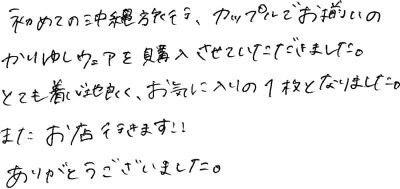 初めての沖縄旅行、カップルでお揃いの
かりゆしウェアを購入させていただきました。
とても着心地良く、お気に入りの1枚となりました。
また お店行きます!!
ありがとうございました。